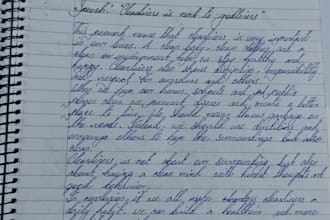 Speech: "Cleanliness is next to godliness"
This proverb means that cleanliness is very important
in our lives. A clean body, clean clothes and a
clean environment help us stay healthy and
happy. Cleanliness also shows discipline, responsibility
and respect for ourselves and others.
When we keep our homes, schools and public
places clean, we prevent diseases and create a better
place to live. We should never throw garbage on
the roads. Instead, we should use dustbins and
encourage others to keep the surroundings
clean.
Cleanliness is not about our surrounding but also
about having a clean mind with honest thoughts and
good behaviour.
if we all make cleanliness a
daily habit, we can build a healthier and more